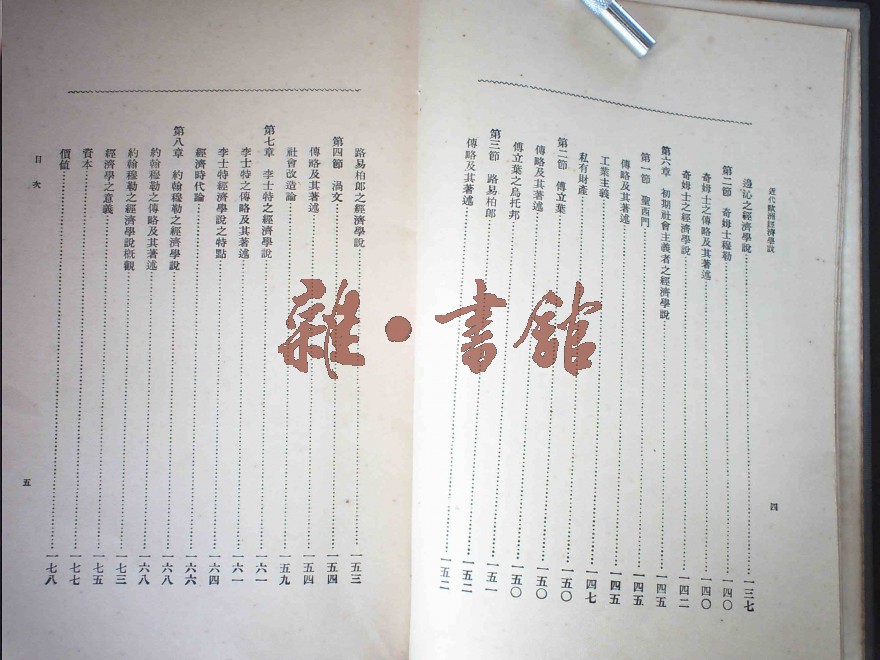 近代歐洲經濟學說
四
邊沁之經濟學說 一三七
第二節 奇姆士穆勒 一四〇
奇姆士之傳略及其著述 一四〇
奇姆士之經濟學說 一四二
第六章 初期社會主義者之經濟學說 一四五
第一節 聖西門 一四五
傳略及其著述 一四五
工業主義 一四五
私有財產 一四七
第二節 傅立葉 一五〇
傳略及其著述 一五〇
傅立葉之烏托邦 一五〇
第三節 路易柏郎 一五一
傳略及其著述 一五二
路易柏郎之經濟學說 一五三
第四節 渦文 一五四
傳略及其著述 一五四
社會改造論 一五九
第七章 李士特之經濟學說 一六一
李士特之傳略及其著述 一六一
李士特經濟學說之特點 一六四
經濟時代論 一六六
第八章 約翰穆勒之經濟學說 一六八
約翰穆勒之傳略及其著述 一六八
約翰穆勒之經濟學說概觀 一七三
經濟學之意義 一七五
資本 一七七
價值 一七八
目次
五
雜·書館